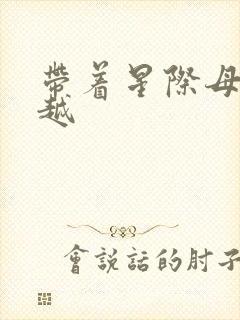 帶着星際母
越
會說話的肘子